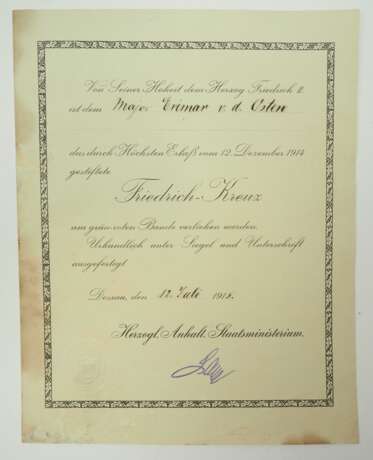 Von Seiner Hoheit dem Herzog Friedrich II.
ist dem Major Erimar v. d. Osten
das durch Höchsten Erlaß vom 12. Dezember 1914
gestiftete
Friedrich-Kreuz
am grün-roten Bande verliehen worden.
Urkundlich unter Siegel und Unterschrift
ausgefertigt
Dessau, den 12. Juli 1918.
Herzogl. Anhalt. Staatsministerium.